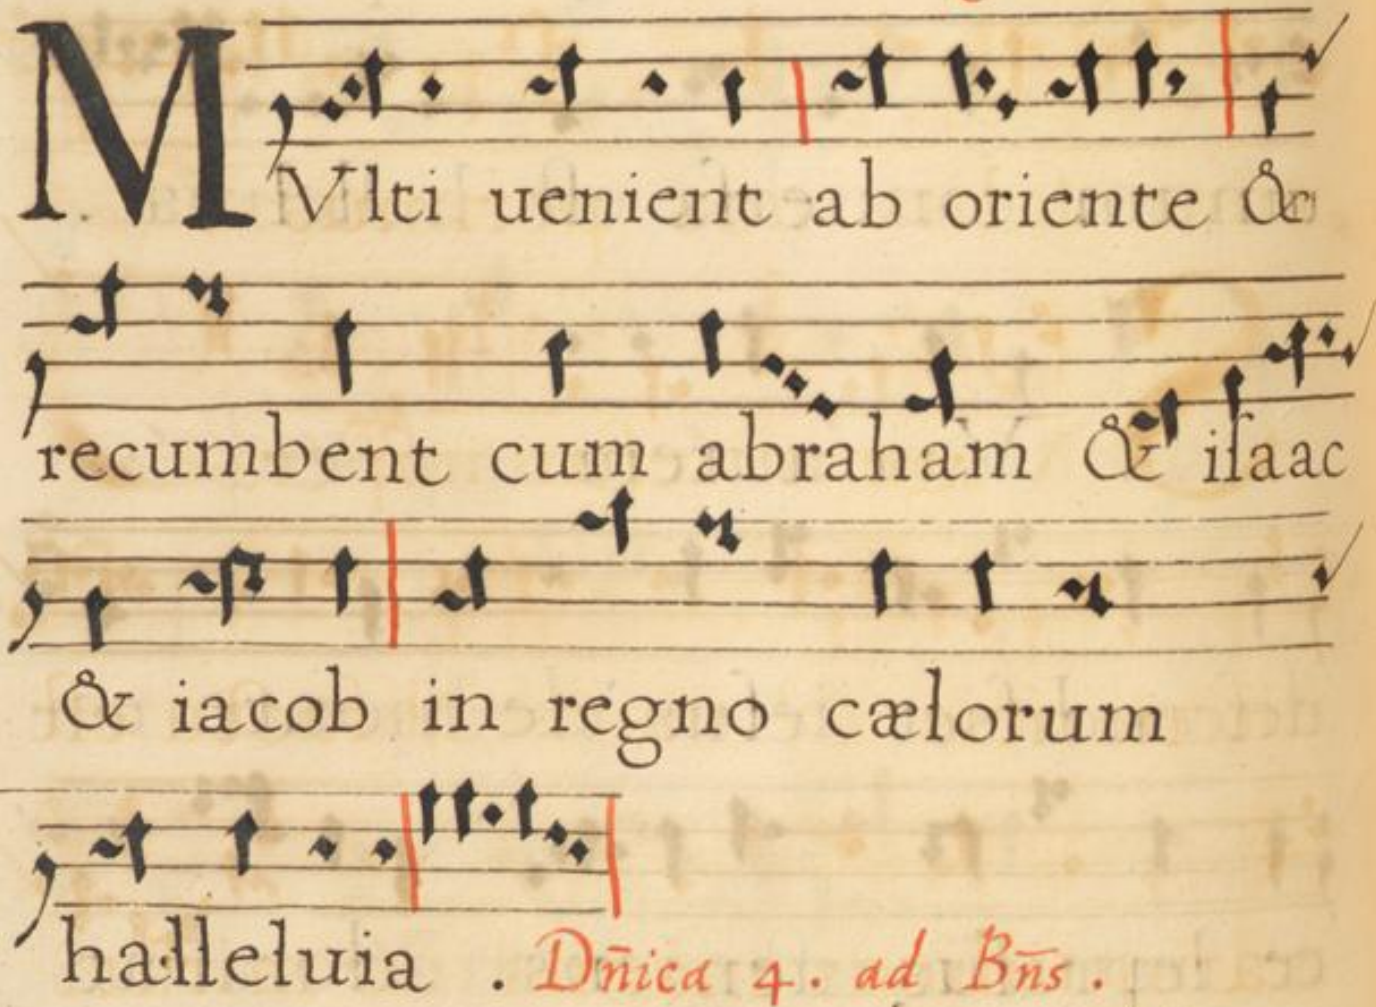 MVlti uenient ab oriente &
recumbent cum abraham & iſaac
& iacob in regno cælorum
halleluia . Dn̄ica 4. ad Bn̄s .